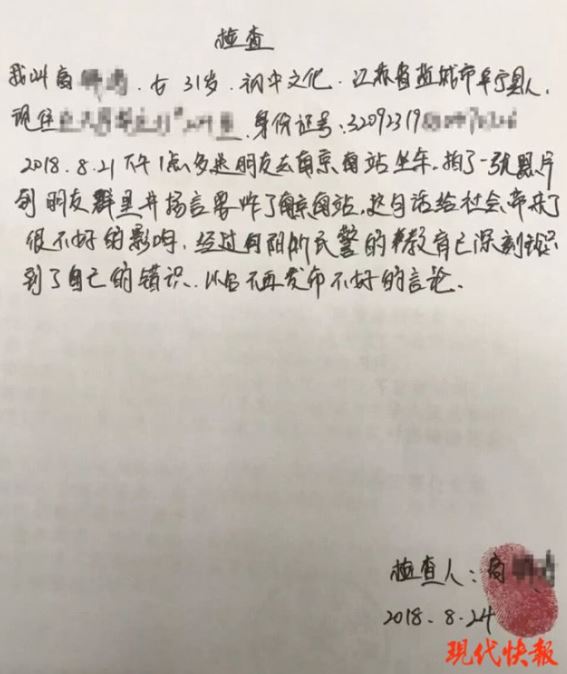 检查
我叫高 女 31岁.初中文化.江苏省盐城市阜宁县人,
现住 身份证号:32092319
2018.8.21下午1点多送朋友去南京南站坐车.拍了一张照片
到朋友群里并扬言要炸了南京南站.这句话给社会带来了
很不好的影响.经过向阳所民警的教育已深刻认识
到了自己的错识.以后不再发布不好的言论.
检查人:高
2018.8.24
现代快报